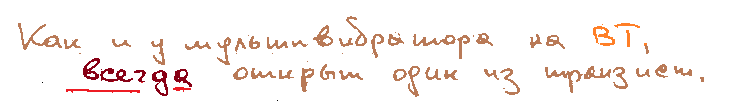 Как и у мультивибратора на ВТ,
всегда открыт один из транзист.